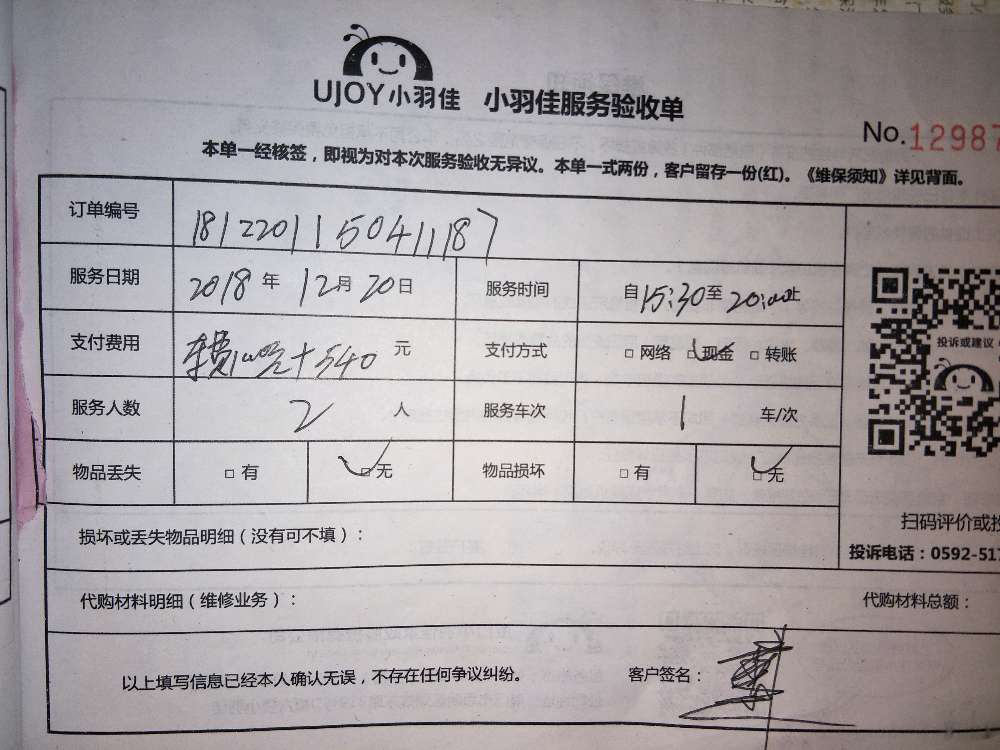 UJOY小羽佳 小羽佳服务验收单
No.12987
本单一经核签，即视为对本次服务验收无异议。本单一式两份，客户留存一份(红)。《维保须知》详见背面。
订单编号 181220115041187
服务日期 2018年12月20日 服务时间 自15:30至20:00止
支付费用 车费100名+540元 支付方式 □网络 □现金 □转账
服务人数 2人 服务车次 1车/次
物品丢失 □有 □无 物品损坏 □有 □无
投诉或建议
扫码评价或投
损坏或丢失物品明细（没有可不填）：
投诉电话：0592-517
代购材料明细（维修业务）： 代购材料总额：
以上填写信息已经本人确认无误，不存在任何争议纠纷。 客户签名：